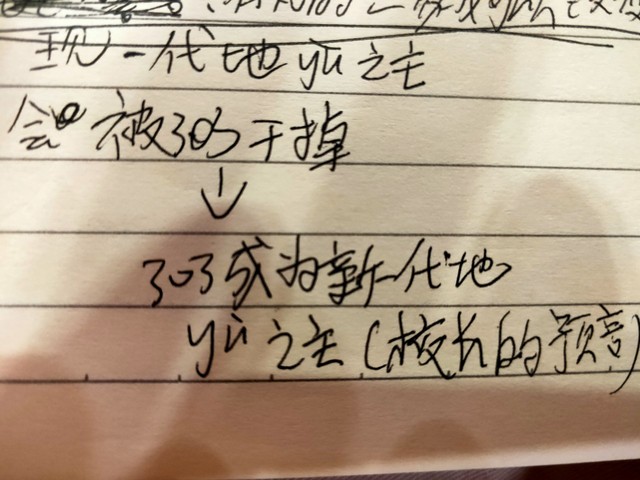 现一代地yù之主
会被303干掉
↓
303成为新一代地
yù之主(校长的预言)